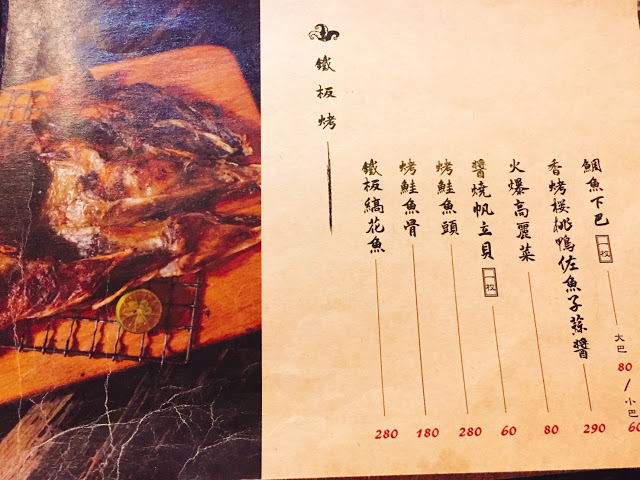 鐵板烤
鯛魚下巴 一枚 大巴 80 / 小巴 60
香烤桜桃鴨佐魚子蒜醬 290
火爆高麗菜 80
醬燒帆立貝 一枚 60
烤鮭魚頭 280
烤鮭魚骨 180
鐵板縞花魚 280